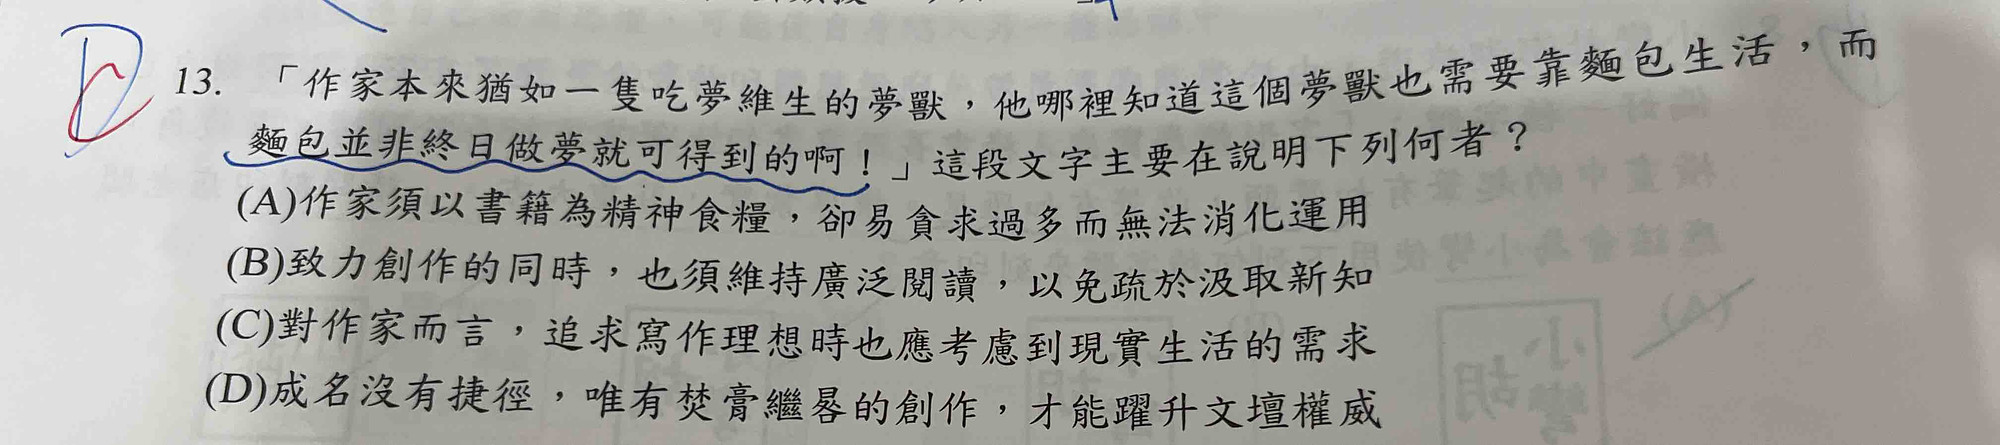 D
C
13. 「作家本來猶如一隻吃夢維生的夢獸，他哪裡知道這個夢獸也需要靠麵包生活，而
麵包並非終日做夢就可得到的啊！」這段文字主要在說明下列何者？
(A)作家須以書籍為精神食糧，卻易貪求過多而無法消化運用
(B)致力創作的同時，也須維持廣泛閱讀，以免疏於汲取新知
(C)對作家而言，追求寫作理想時也應考慮到現實生活的需求
(D)成名沒有捷徑，唯有焚膏繼晷的創作，才能躍升文壇權威